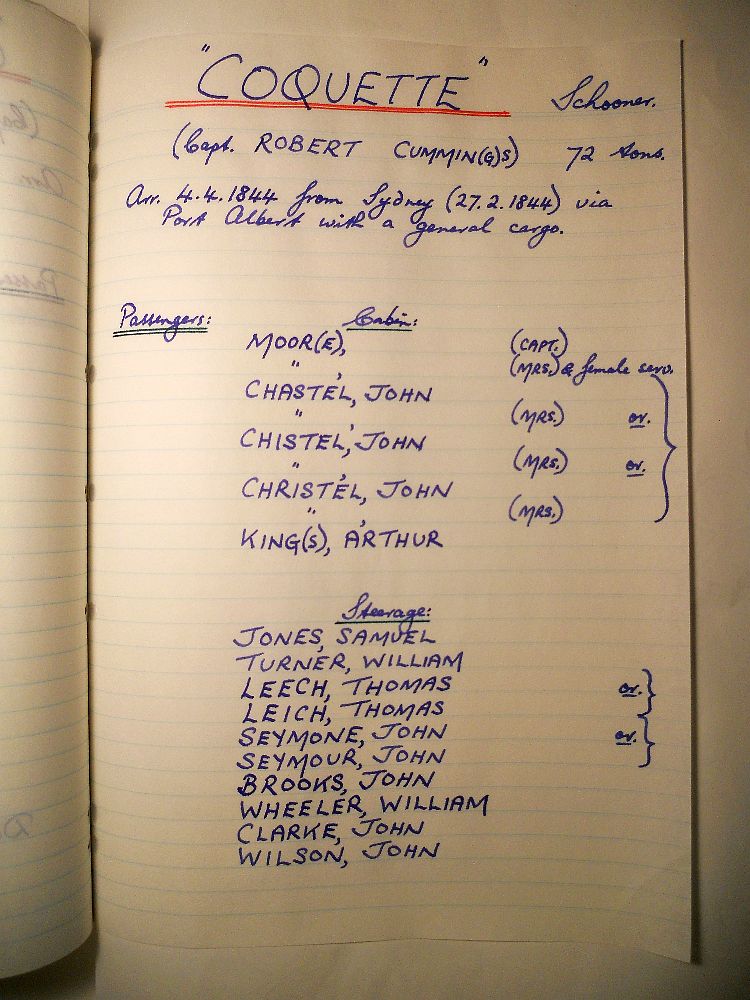 "COQUETTE" Schooner.
(Capt. ROBERT CUMMIN(G)S) 72 tons.
Arr. 4.4.1844 from Sydney (27.2.1844) via
Port Albert with a general cargo.
Passengers: Cabin:
MOOR(E), (CAPT.)
" , (MRS.) & female serv.
CHASTEL, JOHN
" , (MRS.) or.
CHISTEL, JOHN
" , (MRS.) or.
CHRISTEL, JOHN
" , (MRS.)
KING(S), ARTHUR
Steerage:
JONES, SAMUEL
TURNER, WILLIAM
LEECH, THOMAS or.
LEICH, THOMAS
SEYMONE, JOHN or.
SEYMOUR, JOHN
BROOKS, JOHN
WHEELER, WILLIAM
CLARKE, JOHN
WILSON, JOHN